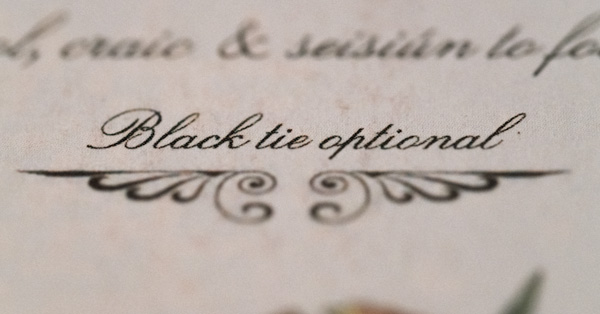 craic & seisiún to
Black tie optional